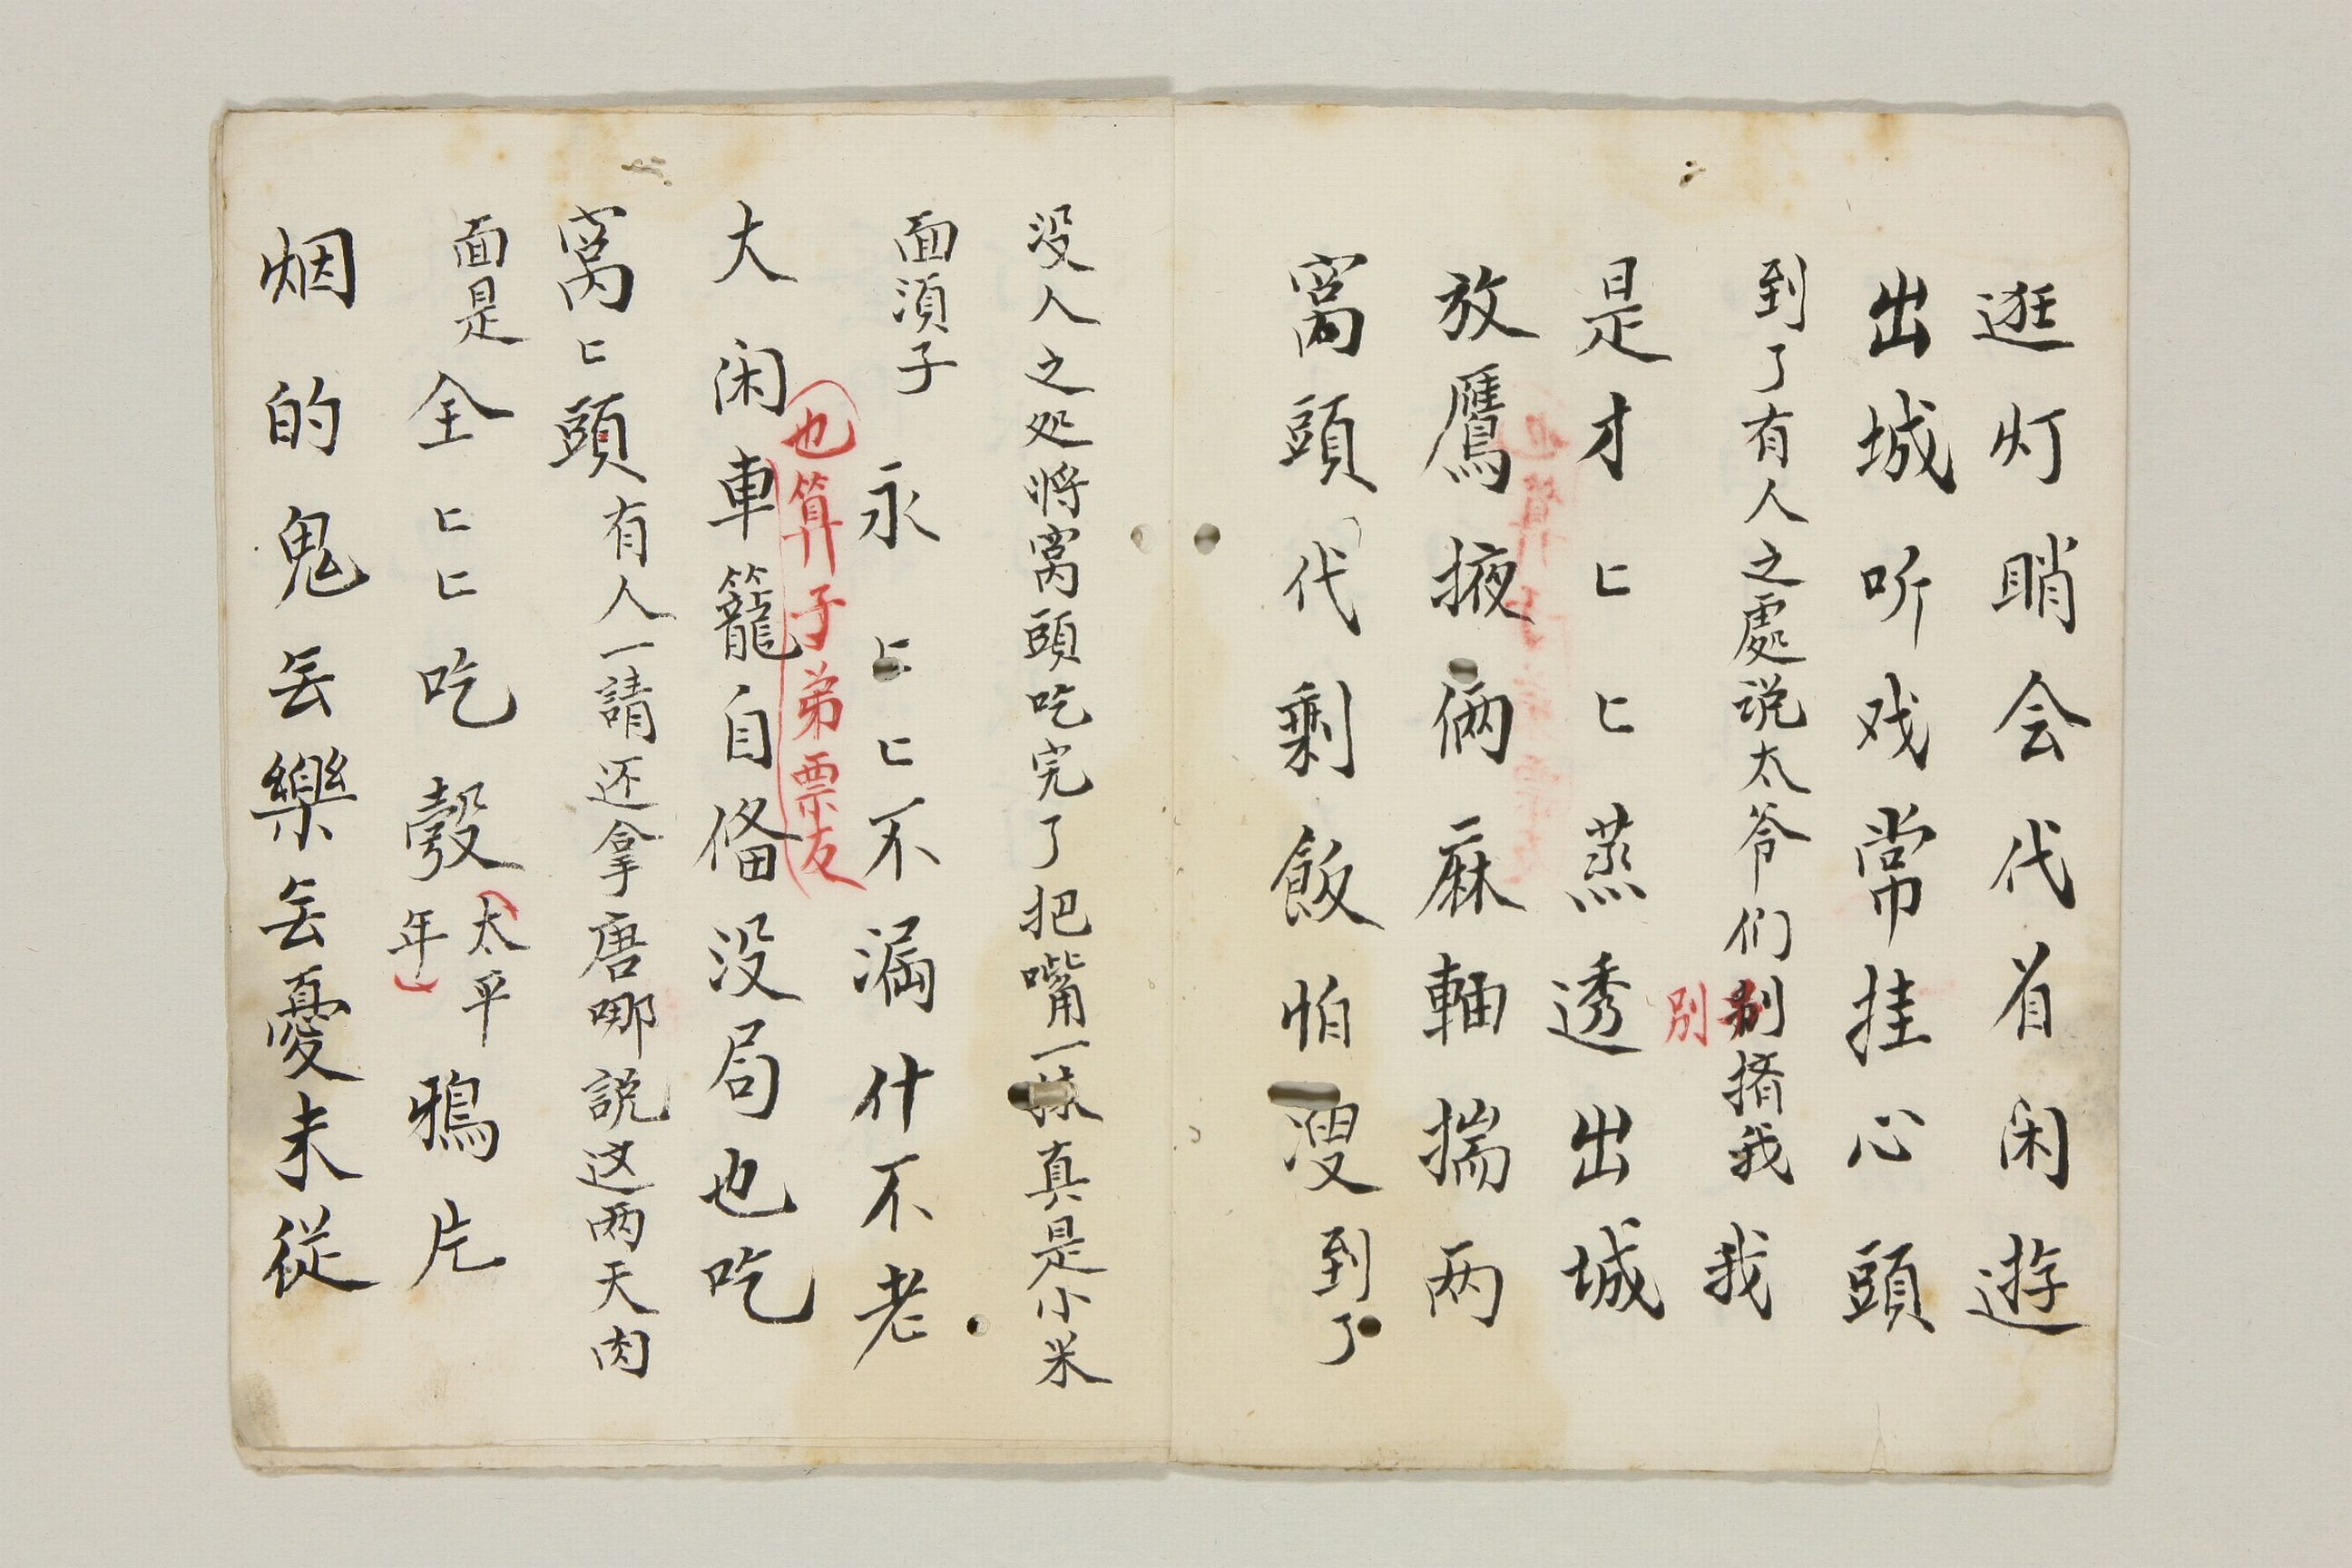 逛灯睄会代肴闲遊
出城听戏常挂心頭
到了有人之處说太爷们别撦我 我
别
是才匕匕蒸透出城
放鷹掖俩麻軸揣两
窩頭代剩飯怕溲到了
没人之处将窩頭吃完了把嘴一抹真是小米
面湏子 永匕匕不漏什不老
也算子弟票友
大闲車籠自俻没局也吃
窩匕頭有人一請还拿唐哪説这两天肉
面是全匕匕吃彀太平年鴉片
烟的鬼無無樂無憂未從